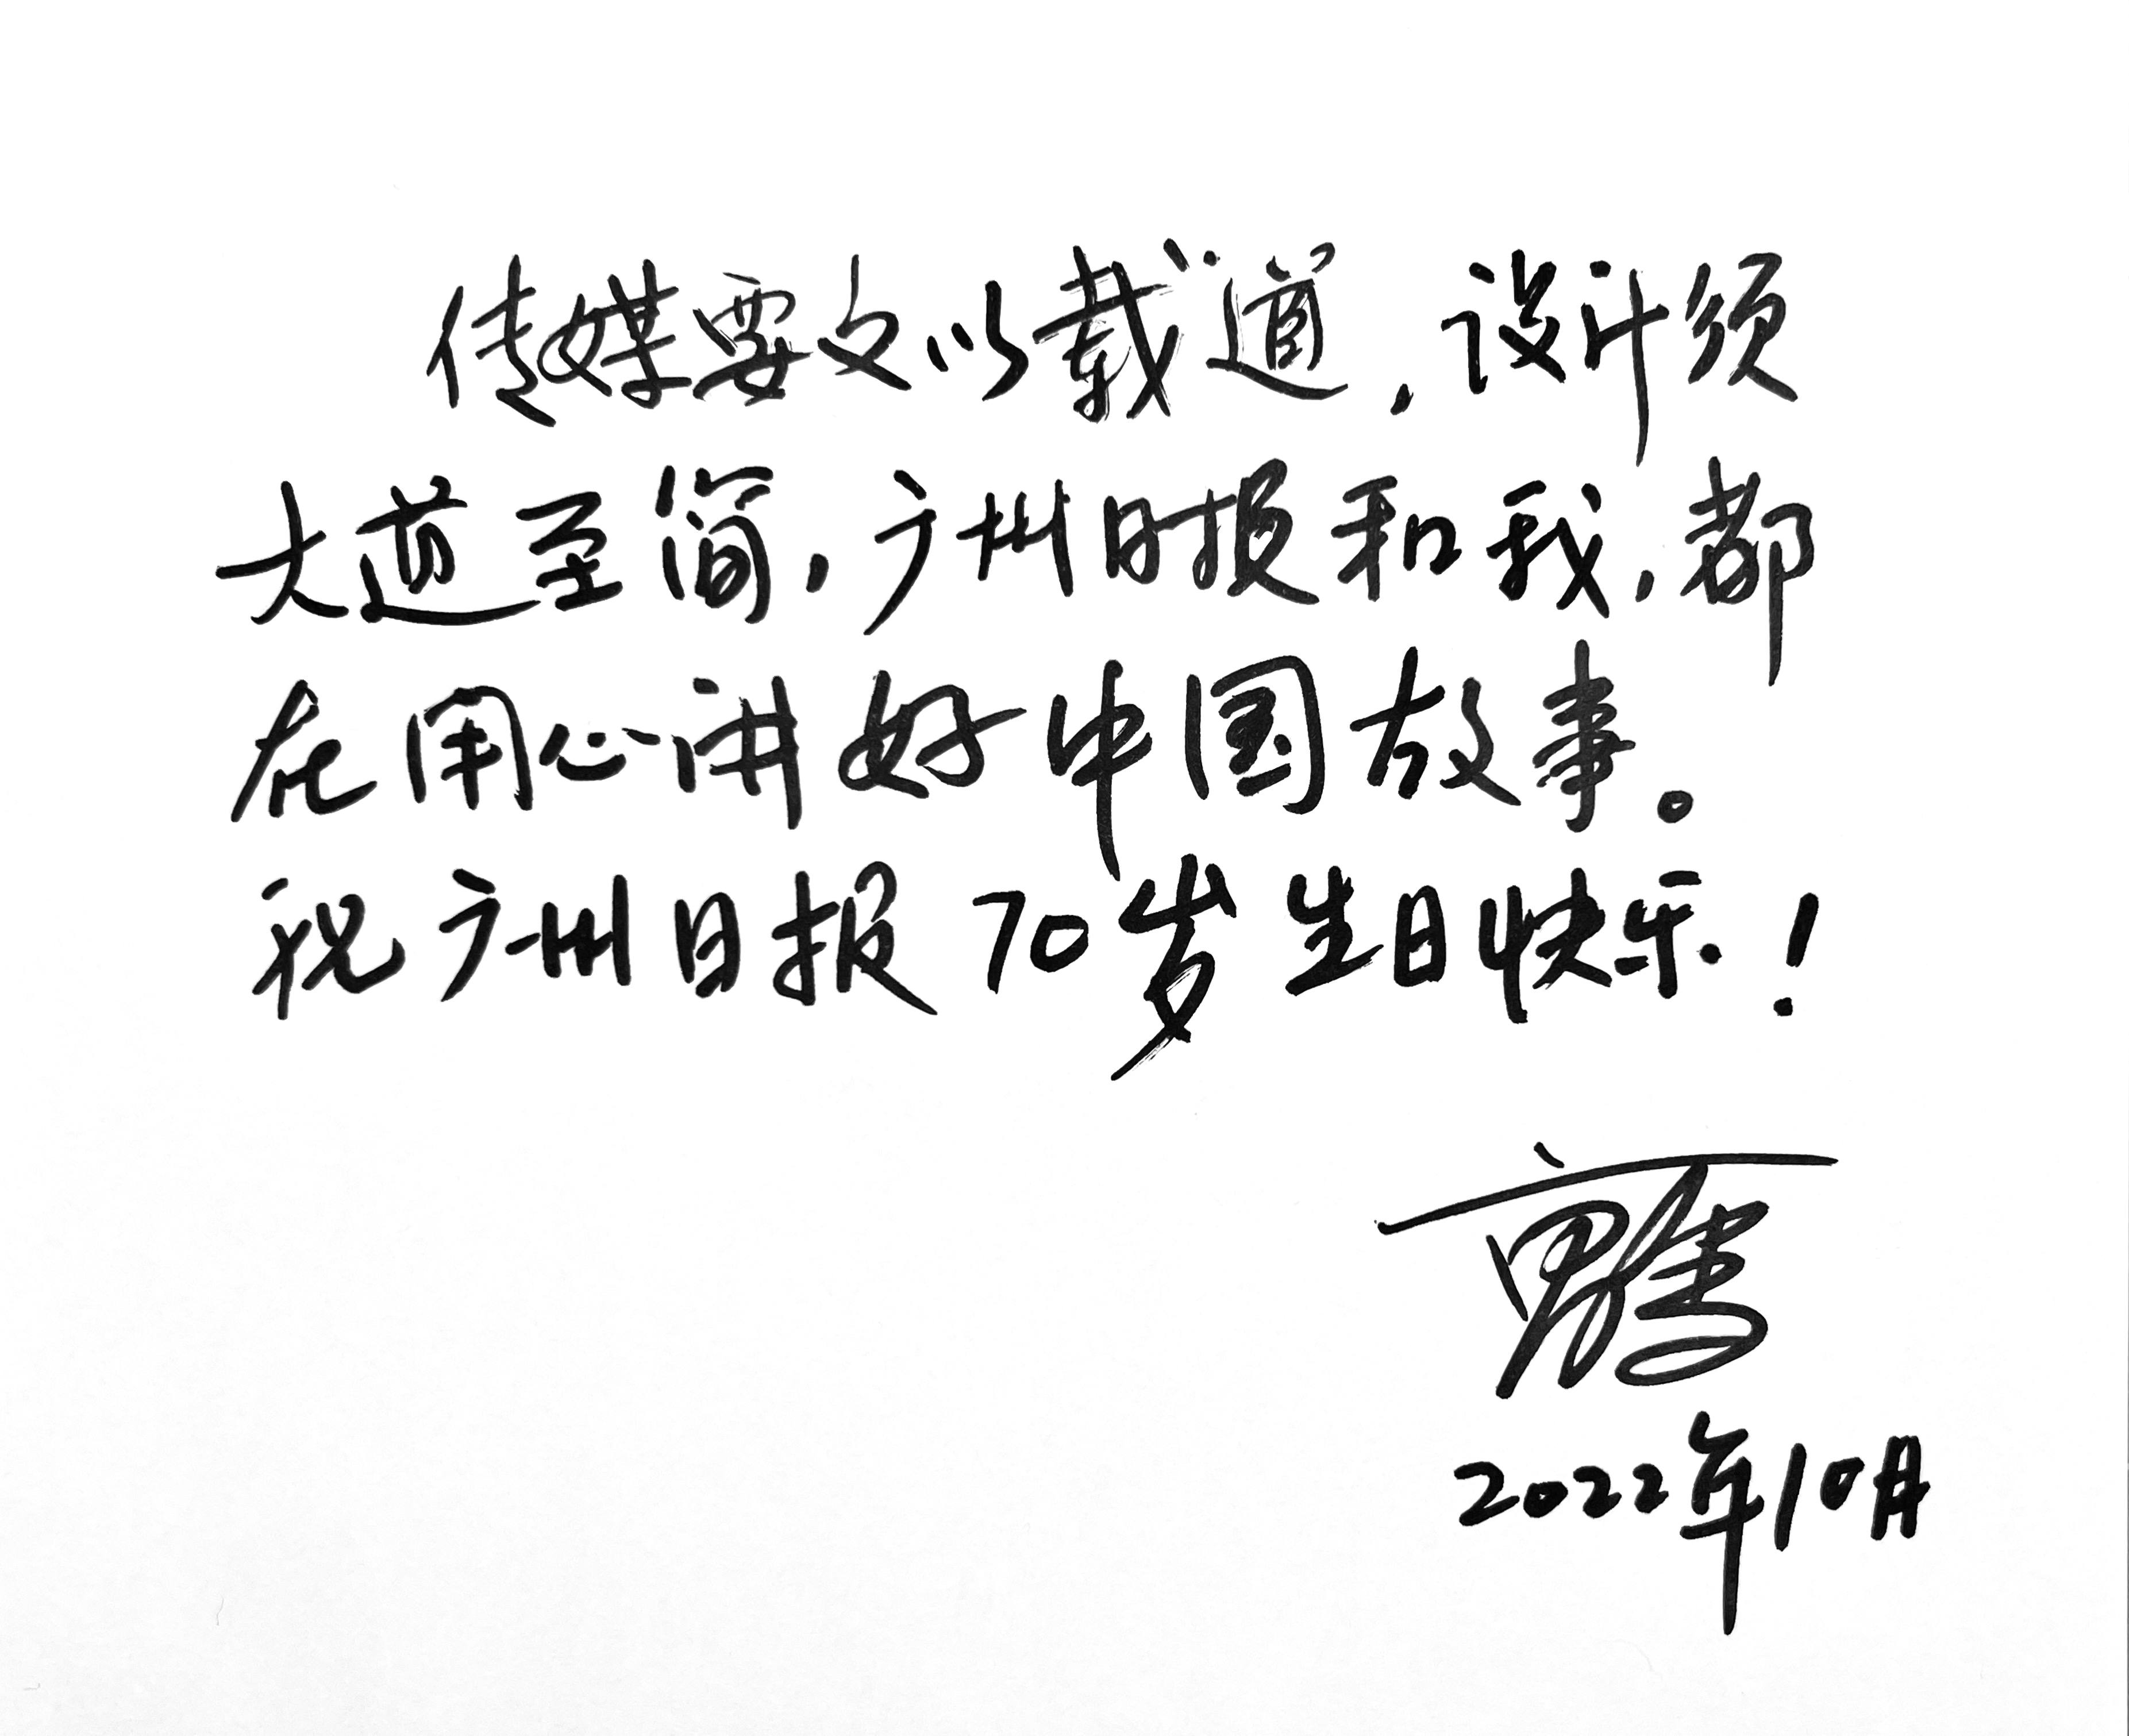 传媒要文以载道，设计须
大道至简，广州日报和我，都
在用心讲好中国故事。
祝广州日报70岁生日快乐！
2022年10月